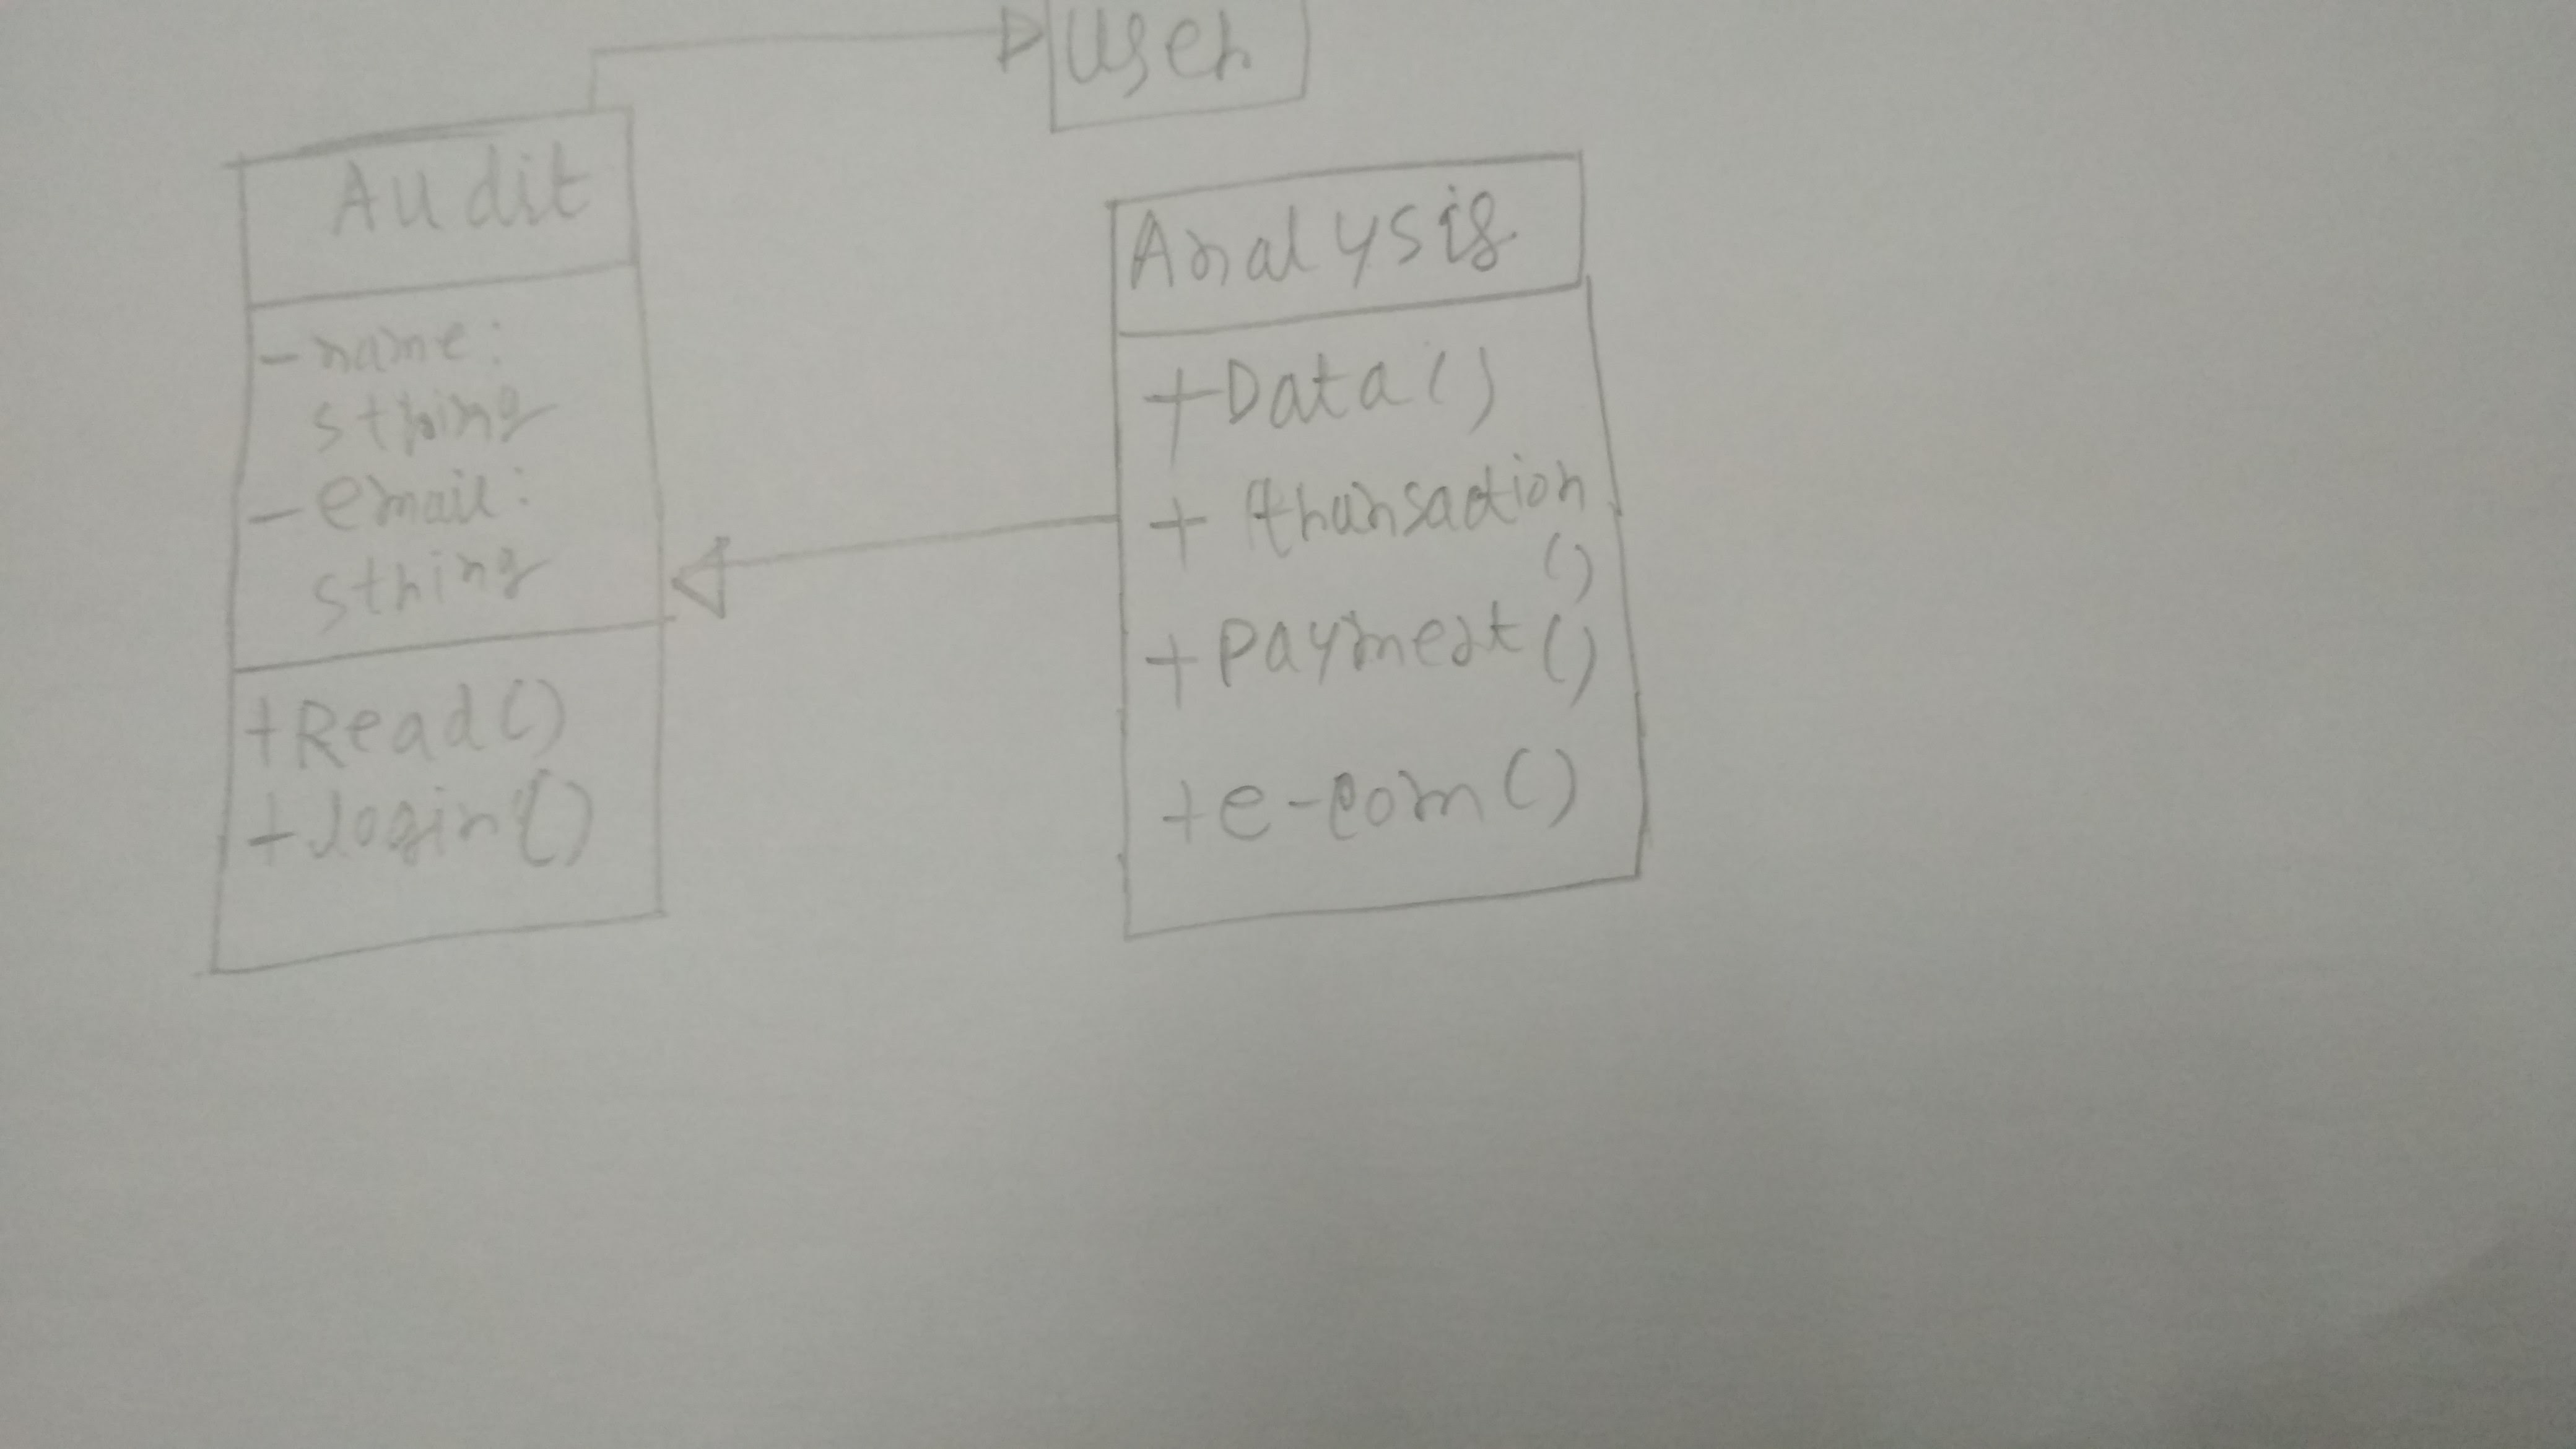 User
Audit
- name:
string
- email:
string
+Read()
+login()
Analysis
+Data()
+ transaction
()
+payment()
+e-com()